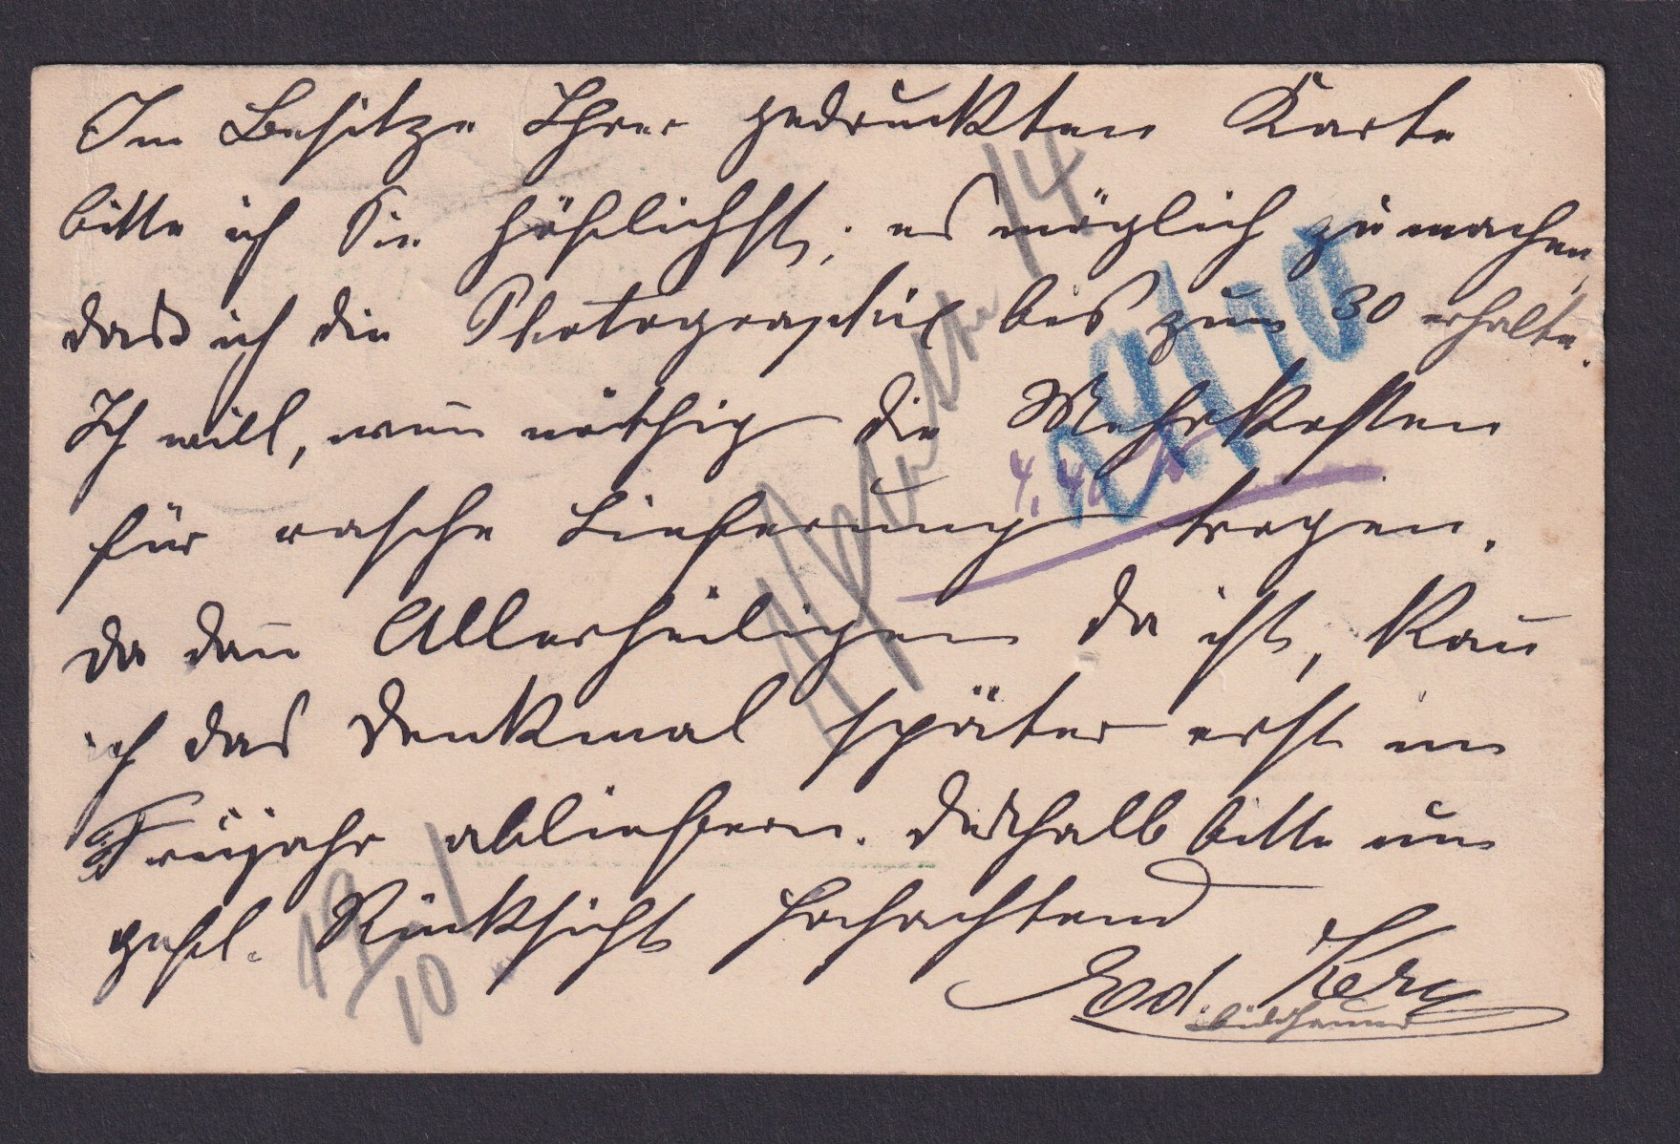 Im Besitze Ihrer gedruckten Karte
bitte ich Sie höflichst, es möglich zu machen,
daß ich die Photographie bis zum 30 erhalte.
Ich will, wenn nöthig die Mehrkosten
für rasche Lieferung tragen.
Da dann Allerheiligen da ist, kann
ich das Denkmal später erst im
Früjahr abliefern. Deshalb bitte um
gefl. Rücksicht Hochachtend
Ed.
Bildhauer
14
29/10
4,40
19/10